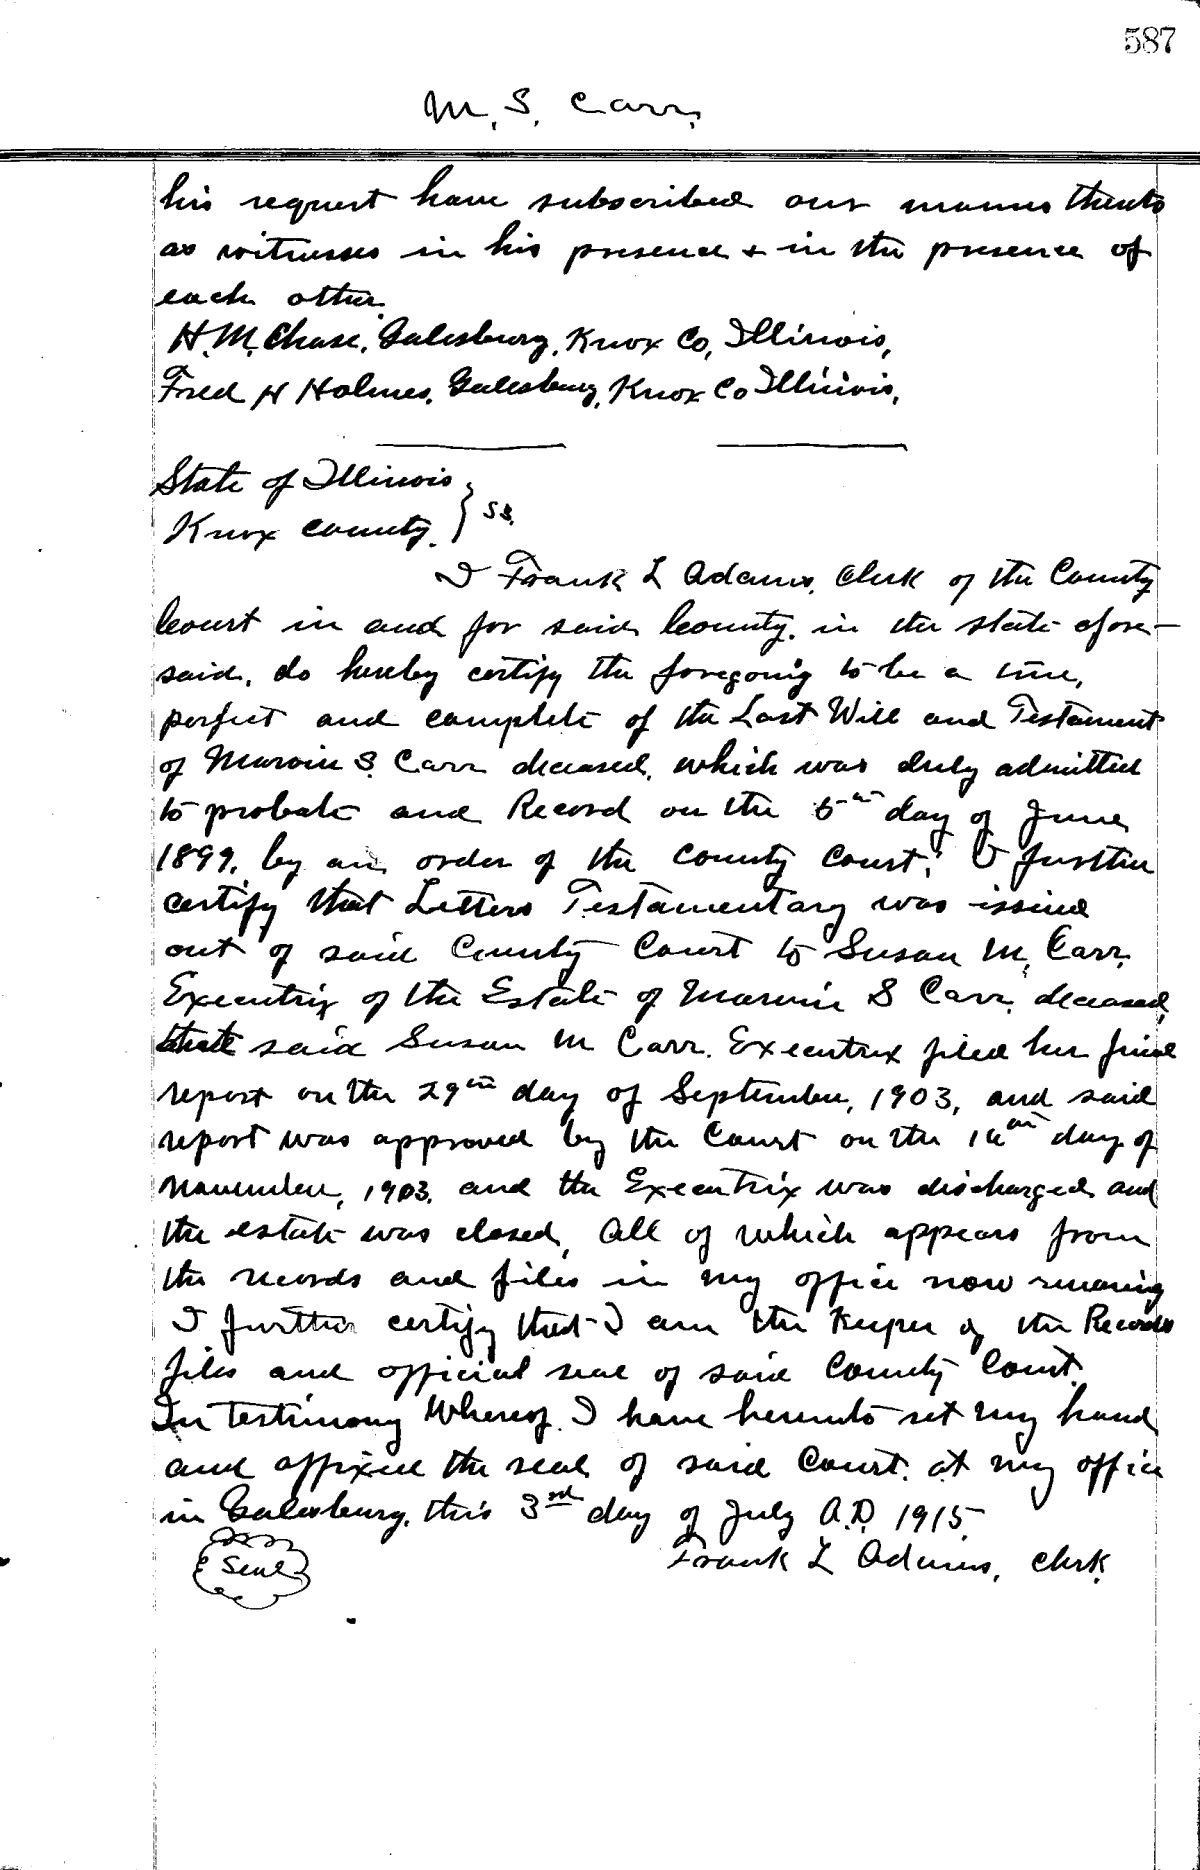 587
M. S. Carr.
his request have subscribed our names thereto
as witnesses in his presence & in the presence of
each other.
H. M. Chase, Galesburg, Knox Co, Illinois,
Fred H Holmes, Galesburg, Knox Co Illinois,
State of Illinois
Knox County. } SS.
I Frank L Adams, Clerk of the County
Court in and for said County, in the state afore-
said, do hereby certify the foregoing to be a true,
perfect and complete of the Last Will and Testament
of Marvin S. Carr deceased, which was duly admitted
to probate and Record on the day of June
1899, by an order of the County Court; I further
certify that Letters Testamentary was issued
out of said County Court to Susan M. Carr,
Executrix of the Estate of Marvin S Carr, deceased,
that said Susan M Carr. Executrix filed her final
report on the 29th day of September, 1903, and said
report was approved by the Court on the day of
November, 1903, and the Executrix was discharged and
the estate was closed, All of which appears from
the records and files in my office now
I further certify that I am the Keeper of the Records
files and official seal of said County Court.
In Testimony Whereof I have hereunto set my hand
and affixed the seal of said Court, at my office
in Galesburg, this 3rd day of July A.D. 1915.
Seal Frank L Adams, Clerk.